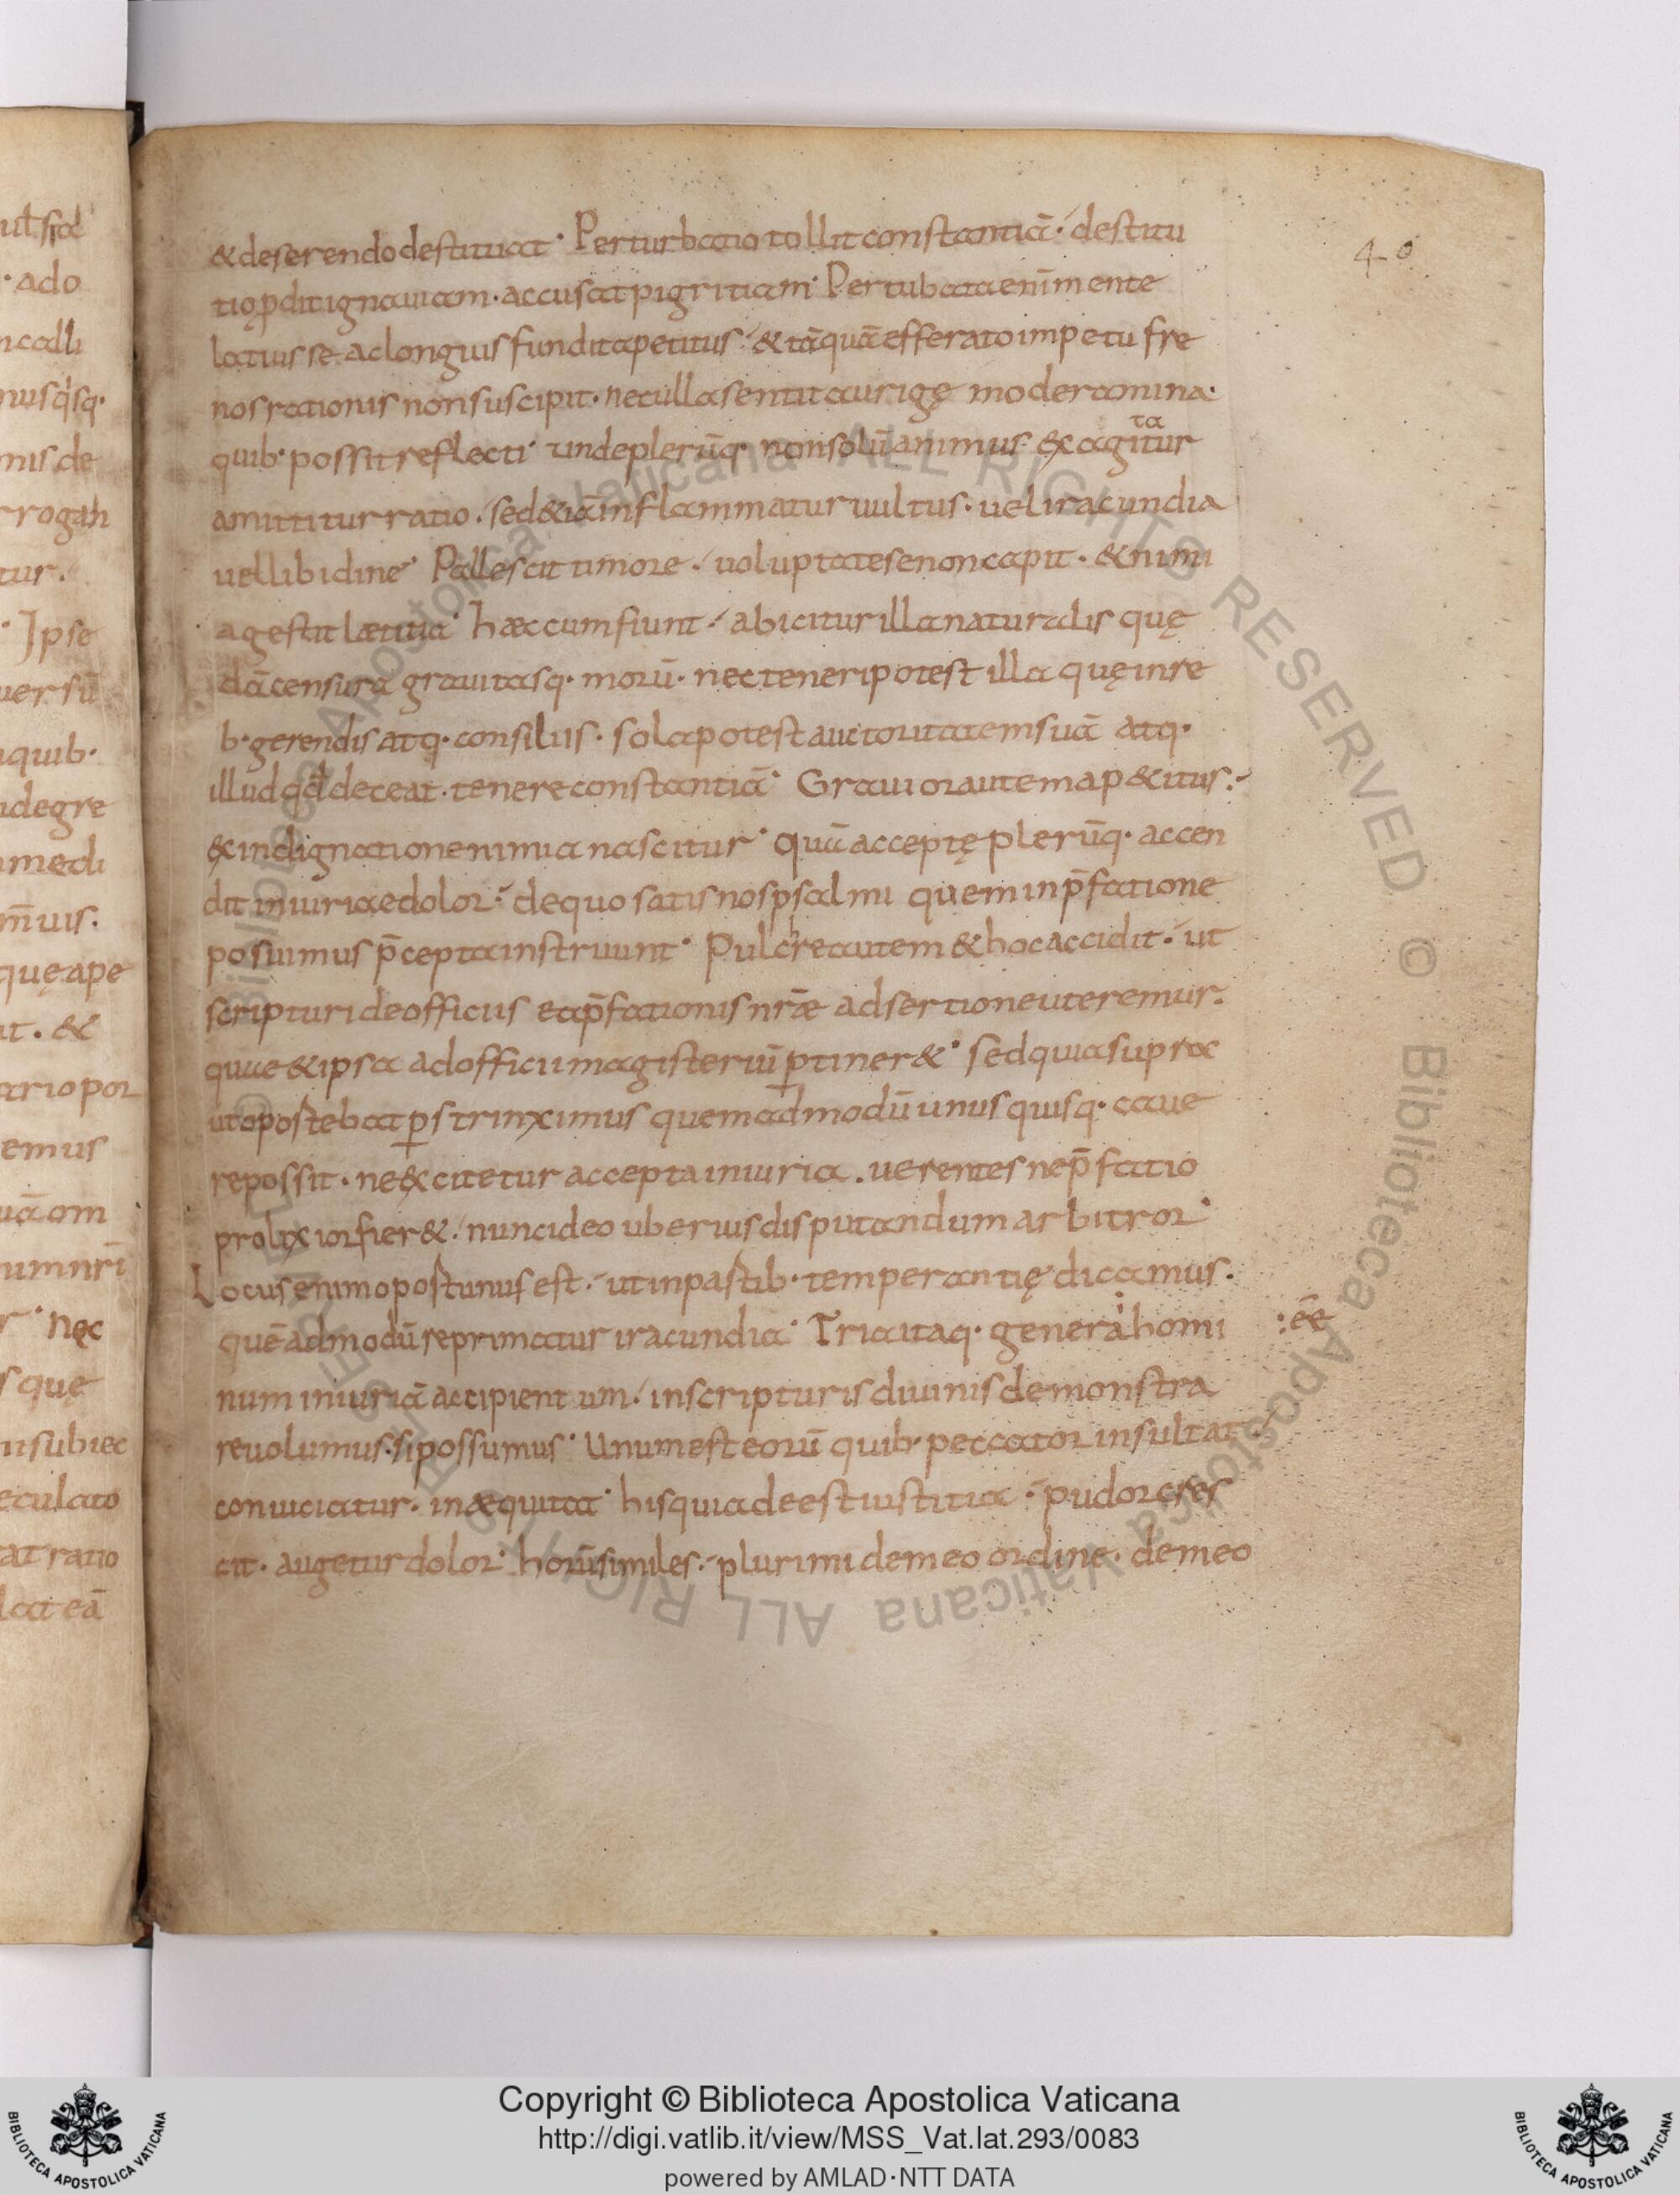 ut siae
· ado
ncalli
nusq'sq·
nis de
rrogan
tur.
· Ipse
uersū
aquib·
ndegre
medi
m̄uis.
quę ape
at · &
ario por
emus
uā om
umnrī
r · nęc
s quę
nsubiec
eculato
at ratio
lat eā
40
& deserendo destituat · Perturbatio tollit constantiā · destitu
tio ꝓdit ignauiam · accusat pigritiam · Pertubata enīm mente
latius se ac longius fundit apetitus · & tāquā efferato impetu fre
nos rationis non suscipit · nec ulla sentit aurigę moderamina ·
quib· possit reflecti · unde plerūq· non solū animus exagitatur
amittitur ratio · sed & iā inflammatur uultus · uel iracundia
uel libidine · Pallescit timore · uoluptate se non capit · & nimi
a gestit lætitia · hæc cum fiunt · abicitur illa naturalis quę
dā censura grauitasq· morū · nec teneri potest illa quę in re
b· gerendis atq· consiliis · sola potest auctoritatem suā atq·
illud qđ deceat · tenere constantiā · Grauior autem ap&itus ·
ex indignatione nimia nascitur · quā acceptę plerūq· accen
dit iniuriae dolor · de quo satis nos psalmi quem in p̄fatione
posuimus p̄cepta instruunt · Pulchre autem & hoc accidit · ut
scripturi de officiis ea p̄fationis nr̄æ adsertione uteremur ·
quae & ipsa ad officii magisteriū ꝑtiner& · sed quia supra
ut opostebat ꝑstrinximus quemadmodū unusquisq· caue
re possit · ne excitetur accepta iniuria · uerentes ne p̄fatio
prolixior fier& · nunc ideo uberius disputandum arbitror ·
Locus enim opostunus est · ut in pastib· temperantię dicamus ·
quēadmodū reprimatur iracundia · Tria itaq· genera homi
:ēe
num iniuriā accipientium · in scripturis diuinis demonstra
re uolumus · si possumus · Unum est eorū quib· peccator insultat
conuiciatur · inæquitat · his quia deest iustitia · pudor cres
cit · augetur dolor · horū similes · plurimi de meo ordine · de meo
© Biblioteca Apostolica Vaticana ALL RIGHTS RESERVED © Biblioteca Apostolica Vaticana ALL RIGHTS RESERVED
Copyright © Biblioteca Apostolica Vaticana
http://digi.vatlib.it/view/MSS_Vat.lat.293/0083
powered by AMLAD·NTT DATA
BIBLIOTECA APOSTOLICA VATICANA
BIBLIOTECA APOSTOLICA VATICANA